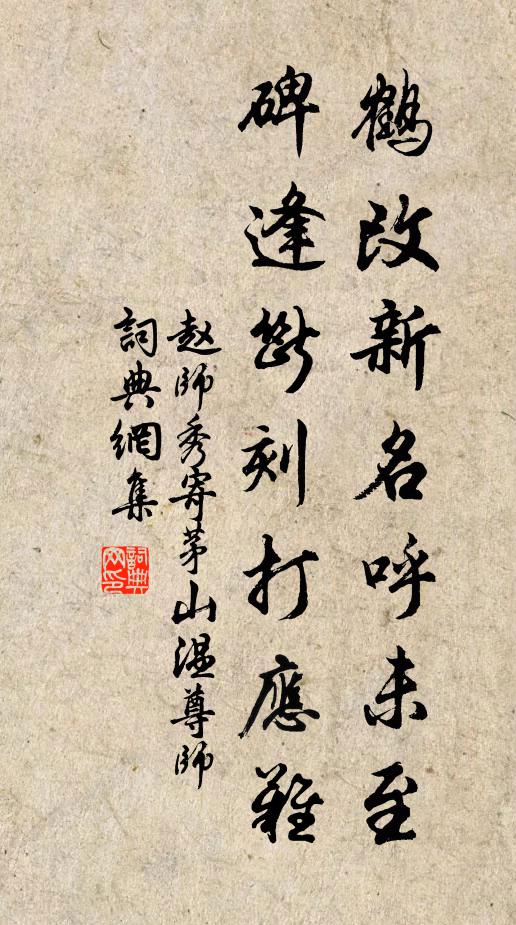 鶴改新名呼未至
碑逢斷刻打應難
赵師秀寄茅山溫尊師
詞典網集
詞典
网印